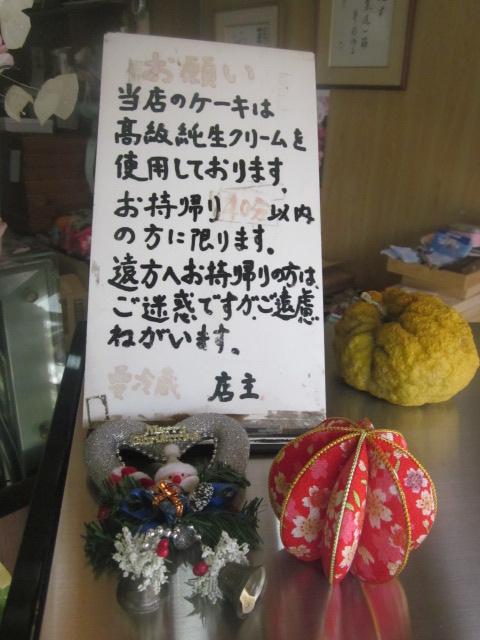 お願い
当店のケーキは
高級純生クリームを
使用しております。
お持帰り40分以内
の方に限ります。
遠方へお持帰りの方は、
ご迷惑ですがご遠慮
ねがいます。
要冷蔵 店主
Merry
Christmas